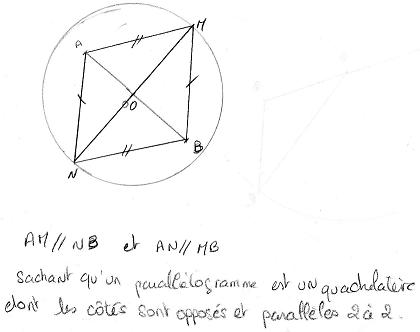 A
M
O
B
N
AM // NB et AN // MB
Sachant qu'un parallélogramme est un quadrilatère
dont les côtés sont opposés et parallèles 2 à 2.